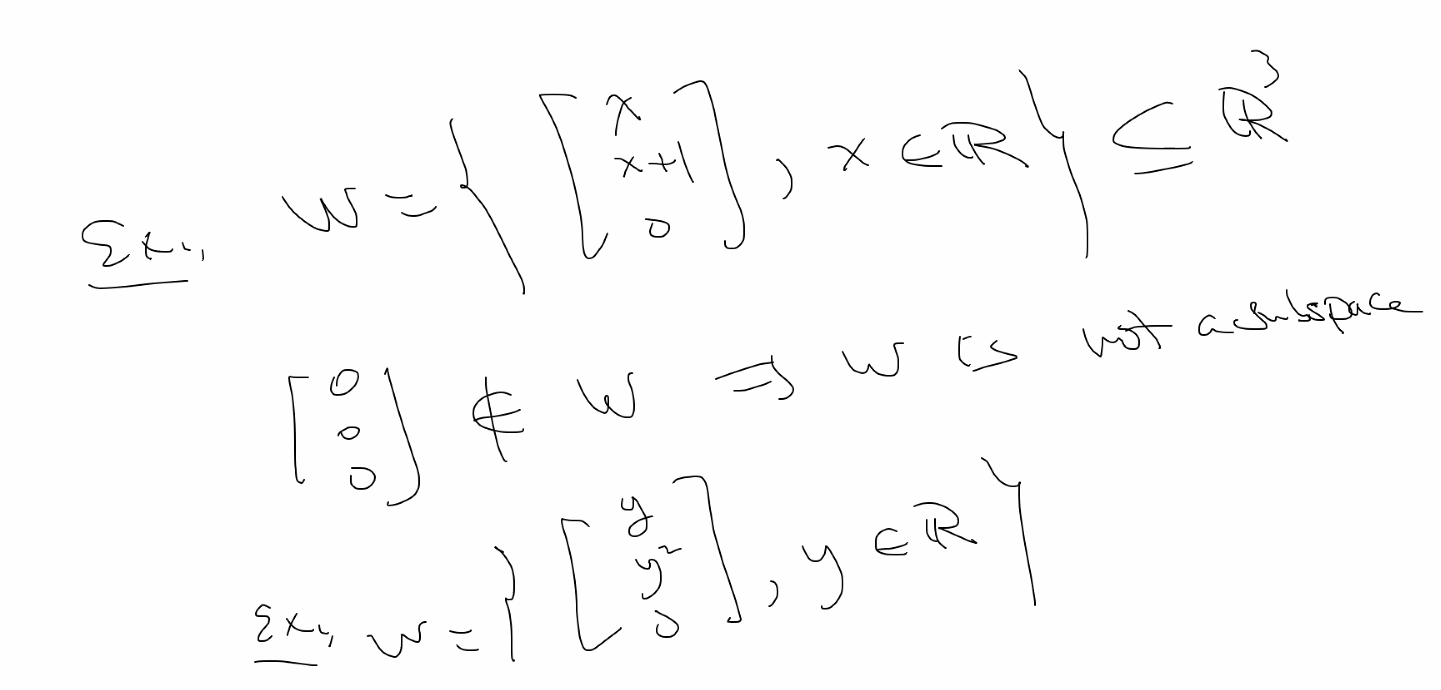 Ex., W = { [ x
x+1
0 ] , x ∈ ℝ } ⊆ ℝ³
[ 0
0
0 ] ∉ W ⇒ W is not a subspace
Ex., W = { [ y
y²
0 ] , y ∈ ℝ }